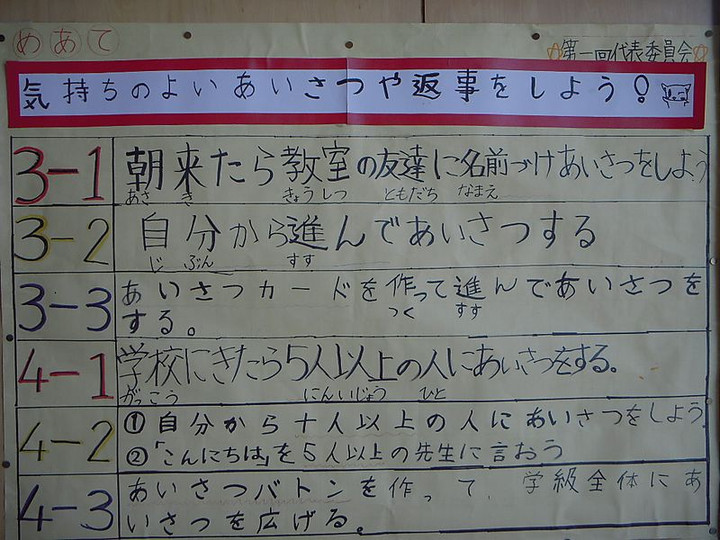 めあて
第一回代表委員会
気持ちのよいあいさつや返事をしよう!
3-1
朝来たら教室の友達に名前づけあいさつをしよう
あさ き きょうしつ ともだち なまえ
3-2
自分から進んであいさつする
じ ぶん すす
3-3
あいさつカードを作って進んであいさつを
つく すす
する。
4-1
学校にきたら5人以上の人にあいさつをする。
がっこう にんいじょう ひと
4-2
①自分から十人以上の人にあいさつをしよう
②「こんにちは」を5人以上の先生に言おう
4-3
あいさつバトンを作って、学級全体にあ
いさつを広げる。